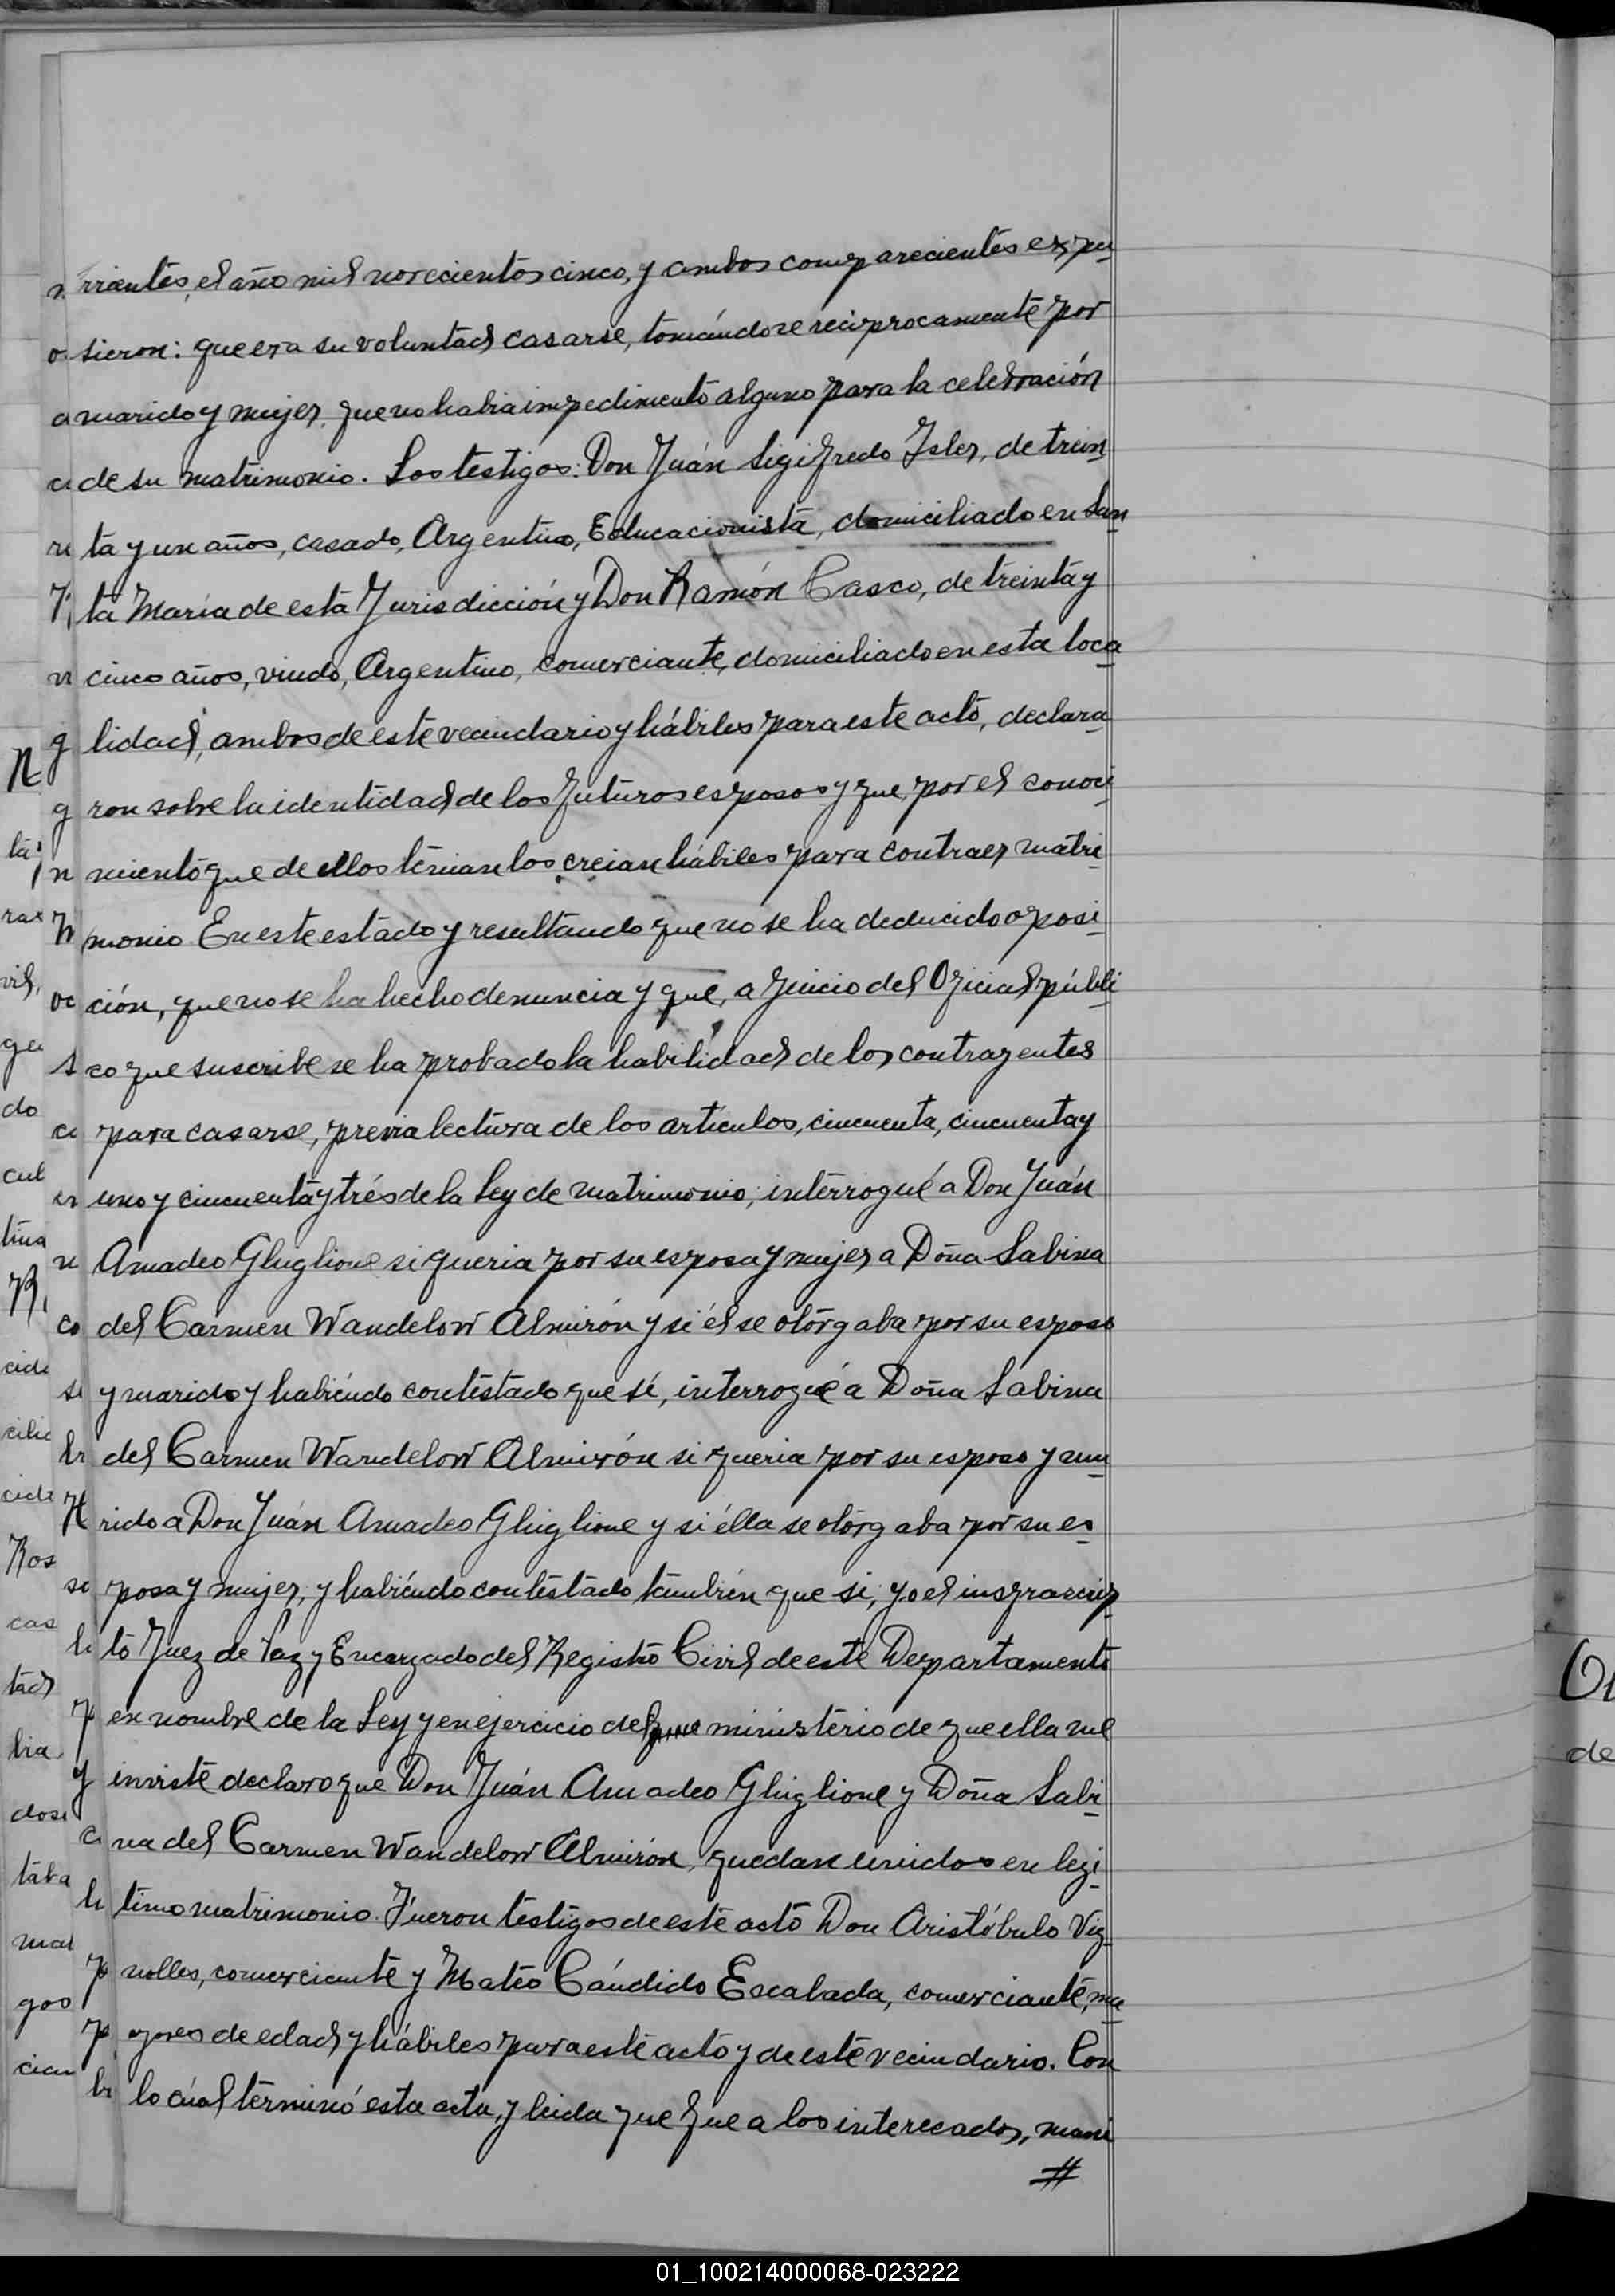 rrientes, el año mil novecientos cinco, y ambos comparecientes expu
sieron: que era su voluntad casarse, tomándose reciprocamente por
marido y mujer, que no habia impedimento alguno para la celebración
de su matrimonio. Los testigos: Don Juán Sigifredo Isler, de trein
ta y un años, casado, Argentino, Educacionista, domiciliado en San
ta María de esta Jurisdicción y Don Ramón Casco, de treinta y
cinco años, viudo, Argentino, comerciante, domiciliado en esta loca
lidad, ambos de este vecindario y hábiles para este acto, declara
ron sobre la identidad de los futuros esposos y que, por el conoci
miento que de ellos tenian los creian hábiles para contraer matri
monio. En este estado y resultando que no se ha deducido oposi
ción, que no se ha hecho denuncia y que, a juicio del Oficial públi
co que suscribe se ha probado la habilidad de los contrayentes
para casarse, previa lectura de los artículos, cincuenta, cincuenta y
uno y cincuenta y trés de la Ley de matrimonio; interrogué a Don Juán
Amadeo Ghiglione si queria por su esposa y mujer a Doña Sabina
del Carmen Wandelow Almirón y si él se otorgaba por su esposo
y marido y habiéndo contestado que sí, interrogué a Doña Sabina
del Carmen Wandelow Almirón si queria por su esposo y ma
rido a Don Juán Amadeo Ghiglione y si élla se otorgaba por su es
posa y mujer, y habiéndo contestado también que si, yo el insprascrip
to Juez de Paz y Encargado del Registro Civil de este Departamento
en nombre de la Ley y en ejercicio del ministerio de que ella me
inviste declaro que Don Juán Amadeo Ghiglione y Doña Sabi
na del Carmen Wandelow Almirón, quedan unidos en legi
timo matrimonio. Fueron testigos de este acto Don Aristóbulo Vig
nolles, comerciante y Mateo Cándido Escalada, comerciante, ma
yores de edad y hábiles para este acto y de este vecindario. Con
lo cúal terminó esta acta, y leida que fue a los interecados, mani
#
01_100214000068-023222